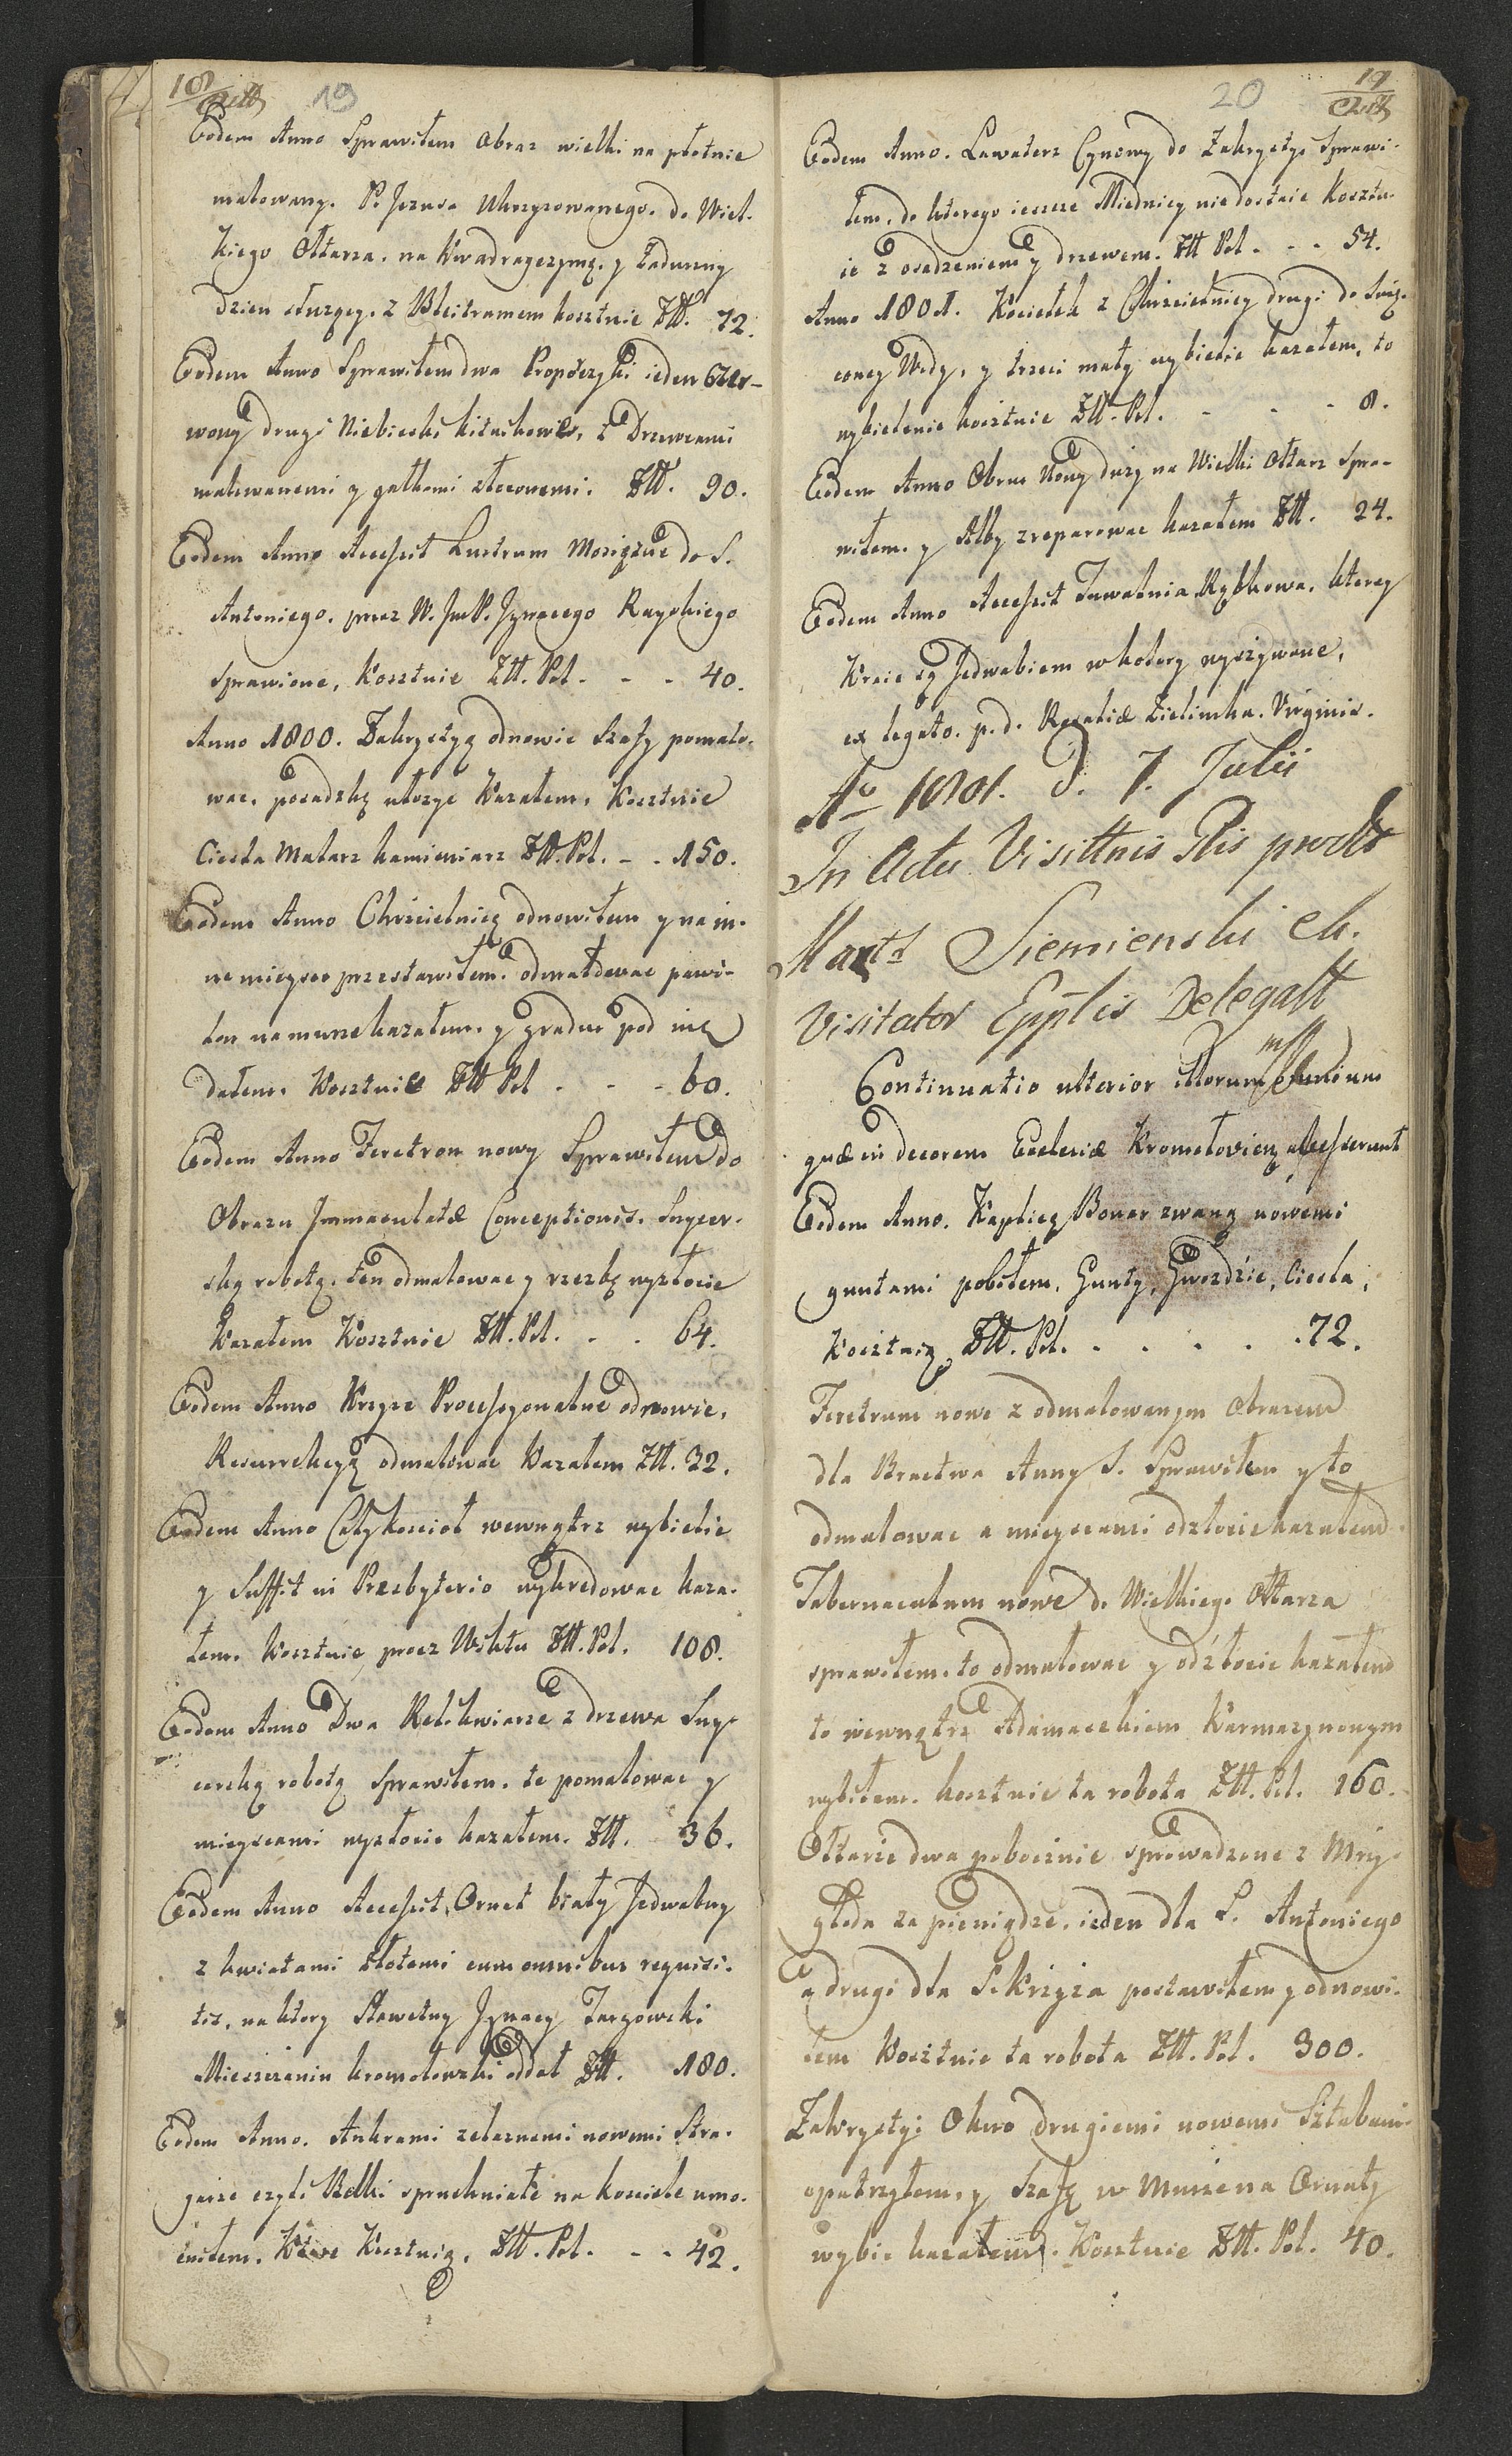 18
19
Eodem Anno Sprawiłem obraz wielki na płotnie
malowany. P. Jezusa Ukrzyzowanego. do Wiel-
kiego Ołtarza. na Kwadragezymę. y Zaduszny
dzien służący. z Bleitramem kosztuie Złł. 72.
Eodem Anno Sprawiłem dwa Proporzyki ieden Czer-
wony drugi Niebieski kitaykowe, z Drzewcami
malowanemi y gałkami złoconemi. Złł. 90.
Eodem Anno Accessit Lustrum Mosiężne do S.
Antoniego. przez W. JmP. Jgnacego Rayskiego
sprawione, Kosztuie Złł. Pol. - - 40.
Anno 1800. Zakrystyą odnowic Szafy pomalo-
wac, posadzkę ułozyc Kazałem, Kosztuie
Ciesla Malarz kamieniarz Złł. Pol. - - 150.
Eodem Anno Chrzcielnicę odnowiłem y na in-
ne mieysce przestawiłem. odmalowac pawi-
lon na murze kazałem. y gradus pod nię
dałem. Kosztuie Złł Pol - - - 60.
Eodem Anno Feretron nowy Sprawiłem do
Obrazu Immaculatæ Conceptionis. Snycer-
ską robotą. ten odmalowac y rzezbę wyzłocic
Kazałem Kosztuie Złł. Pol. - - 64.
Eodem Anno Krzyze Processyonalne odnowic,
Resurrekcyą odmalowac Kazałem Złł. 32.
Eodem Anno Cały kosciol wewnątrz wybielic
y Suffit in Presbyterio wykredowac kaza-
łem. Kosztuie precz Wiktu Złł. Pol. 108.
Eodem Anno Dwa Relikwiarze z drzewa Sny-
cerską robotą sprawiłem. te pomalowac y
mieyscami wyzłocic kazałem. Złł. 36.
Eodem Anno Accessit, Ornat biały Jedwabny
z kwiatami złotemi cum omnibus requisi-
tis, na ktory Sławetny Jgnacy Targowski
Miesczanin kromołowski oddał Złł. 180.
Eodem Anno. Ankrami zelaznemi nowemi Stra-
garze czyli Belki spruchniałe na kosciele umo-
cniłem. Ktore Kosztuią. Złł. Pol. - - 42.
20
19
Eodem Anno. Lawaterz Cynowy do Zakrystyi Sprawi-
łem. do ktorego ieszcze Miednicy niedostaie Kosztu-
ie z osadzeniem y drzewem. Złł Pol. - - 54.
Anno 1801. Kociełek z Chrzcielnicy drugi do Swię-
coney Wody, y trzeci mały wybielic kazałem, to
wybielenie kosztuie Złł. Pol. - - - 8.
Eodem Anno Obrus Nowy duzy na Wielki Ołtarz Spra-
wiłem. y Alby zreparowac kazałem Złł. 24.
Eodem Anno Accessit Tuwalnia Rąbkowa, ktorey
Kraie są Jedwabiem w kolory wyszywane,
ex legato. p. d. Rosaliæ Zielinska. Virginis.
Ao 1801. D. 7. Julii
In Actu Visittnis Plis
Siemienski
Visitator Epplis Delegatt
Continuatio ulterior illorum omnium
quæ in decorem Ecclesiæ Kromołovien accesserunt
Eodem Anno. Kaplicę Bonar zwaną nowemi
guntami pobiłem, Gunty, Gwozdzie, Ciesla,
Kosztuią Złł. Pol. . . . . . 72.
Feretrum nowe z odmalowanym obrazem
dla Bractwa Anny S. Sprawiłem y to
odmalowac a mieyscami odzłocic kazałem.
Tabernaculum nowe do Wielkiego Ołtarza
sprawiłem. to odmalowac y odzłocic kazałem
to wewnątrz Adamaszkiem Karmazynowym
wybiłem. kosztuie ta robota Złł. Pol. 160.
Ołtarze dwa pobocznie sprowadzone z Mrzy-
głoda za pieniądze. ieden dla S. Antoniego
a drugi dla S. Krzyza postawiłem y odnowi-
łem Kosztuie ta robota Złł. Pol. 300.
Zakrystyi Okno drugiemi nowemi Sztabami
opatrzyłem, y Szafę w Murze na Ornaty
wybic kazałem. Kosztuie Złł. Pol. 40.